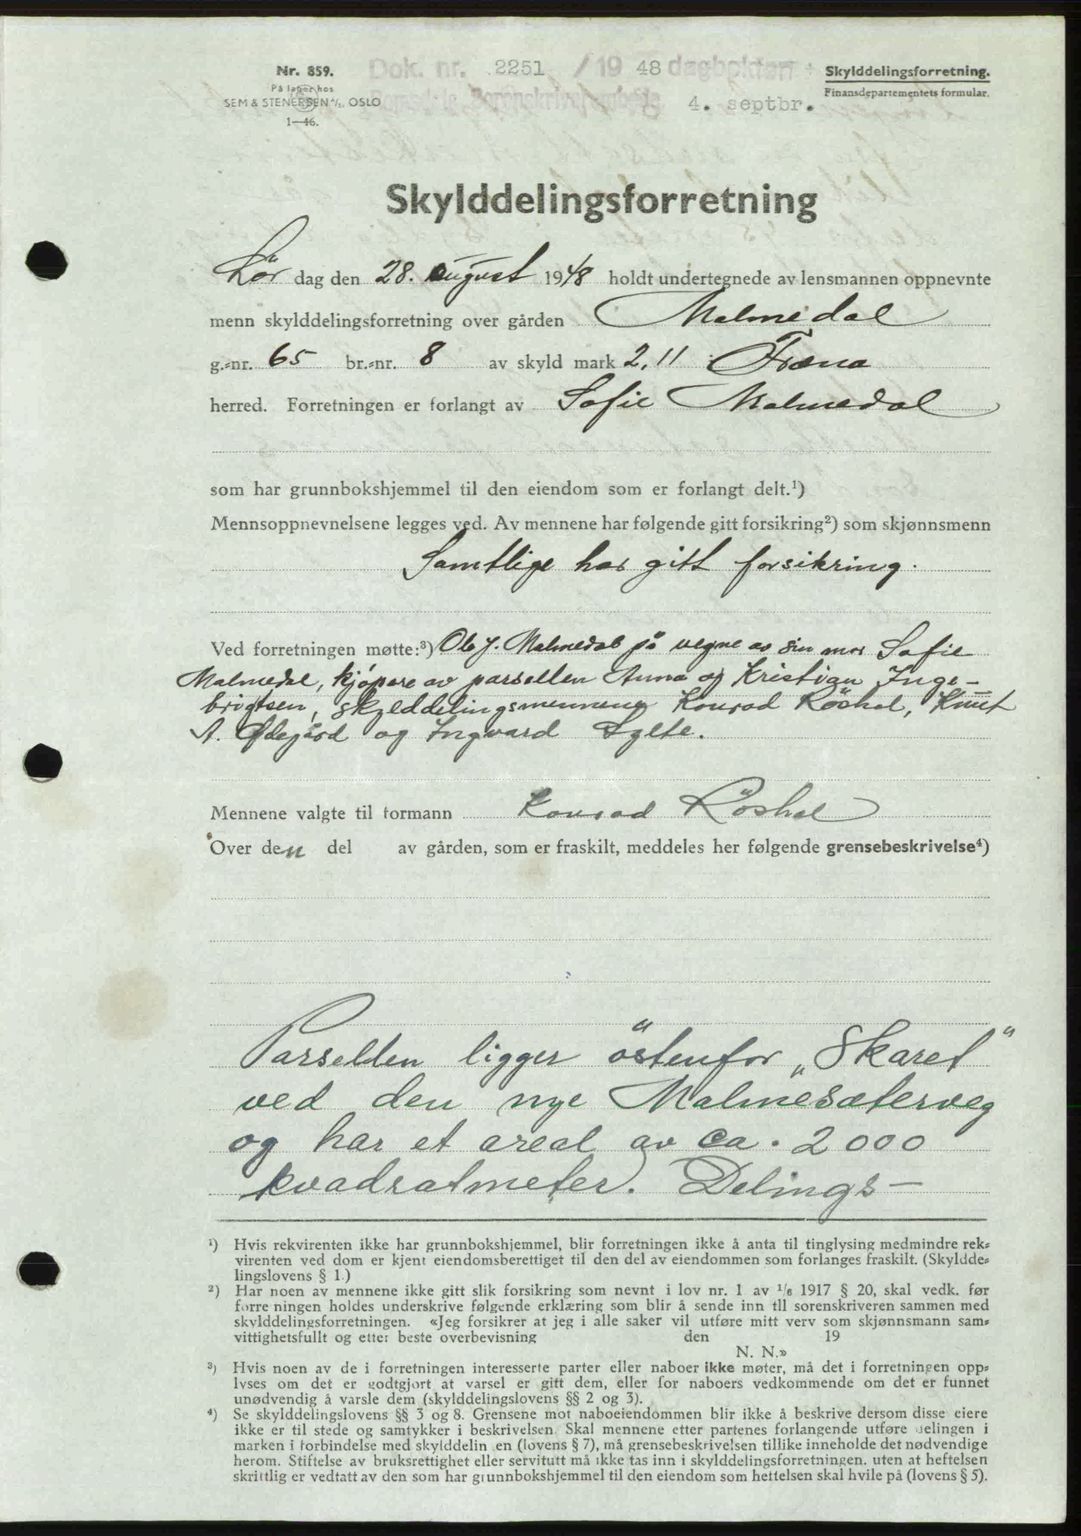 Nr. 859.
På lager hos
SEM & STENERSEN A/S, OSLO
1—46.
Dok. nr. 2251 / 19 48 dagboken
4. septbr.
Skylddelingsforretning.
Finansdepartementets formular.
Skylddelingsforretning
Lør dag den 28. august 1948 holdt undertegnede av lensmannen oppnevnte
menn skylddelingsforretning over gården Malmedal
g.-nr. 65 br.-nr. 8 av skyld mark 2,11 i Fræna
herred. Forretningen er forlangt av Sofie Malmedal
som har grunnbokshjemmel til den eiendom som er forlangt delt.¹)
Mennsoppnevnelsene legges ved. Av mennene har følgende gitt forsikring²) som skjønnsmenn
Samtlige har gitt forsikring.
Ved forretningen møtte:³) Ola J. Malmedal på vegne av sin mor Sofie
Malmedal, kjøpere av parsellen Anna og Kristian Inge-
brigtsen, skylddelingsmennene Konrad Röshol, Knut
A. Ødegård og Ingvard Sylte.
Mennene valgte til formann Konrad Röshol
Over den del av gården, som er fraskilt, meddeles her følgende grensebeskrivelse⁴)
Parsellen ligger östenfor „Skaret"
ved den nye Malmesæterveg
og har et areal av ca. 2000
kvadratmeter. Delings-
¹) Hvis rekvirenten ikke har grunnbokshjemmel, blir forretningen ikke å anta til tinglysing medmindre rek-
virenten ved dom er kjent eiendomsberettiget til den del av eiendommen som forlanges fraskilt. (Skyldde-
lingslovens § 1.)
²) Har noen av mennene ikke gitt slik forsikring som nevnt i lov nr. 1 av 1/6 1917 § 20, skal vedk. før
forre ningen holdes underskrive følgende erklæring som blir å sende inn til sorenskriveren sammen med
skylddelingsforretningen. «Jeg forsikrer at jeg i alle saker vil utføre mitt verv som skjønnsmann sam-
vittighetsfullt og etter beste overbevisning den 19
N. N.»
³) Hvis noen av de i forretningen interesserte parter eller naboer ikke møter, må det i forretningen opp-
lyses om det er godtgjort at varsel er gitt dem, eller for naboers vedkommende om det er funnet
unødvendig å varsle dem (skylddelingslovens §§ 2 og 3).
⁴) Se skylddelingslovens §§ 3 og 8. Grensene mot naboeiendommen blir ikke å beskrive dersom disse eiere
ikke er til stede og samtykker i beskrivelsen. Skal mennene etter partenes forlangende utføre delingen i
marken i forbindelse med skylddelin en (lovens § 7), må grensebeskrivelsen tillike inneholde det nødvendige
herom. Stiftelse av bruksrettighet eller servitutt må ikke tas inn i skylddelingsforretningen, uten at heftelsen
skriftlig er vedtatt av den som har grunnbokshjemmel til den eiendom som heftelsen skal hvile på (lovens § 5).